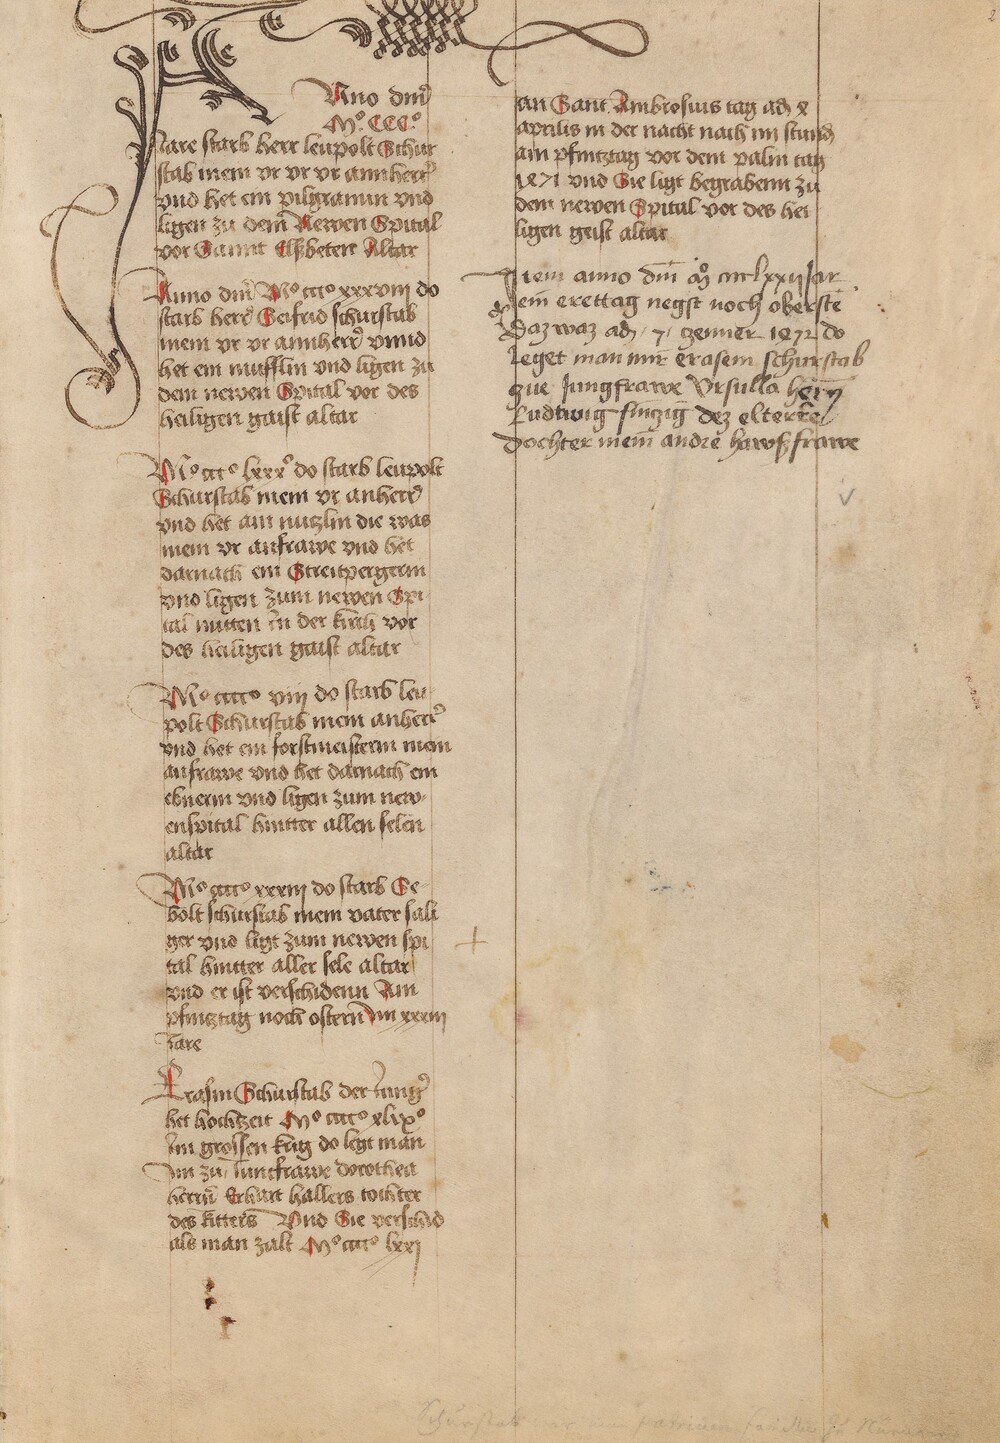 Anno dm̄
Mº CCCº
Jare starb herr leupolt Schur
stab mein vr vr vr annherr
vnd het ein pilgramin vnd
ligen zu dem Newen Spital
vor Sannt Elsbeten Altar
Anno dm̄ Mº cccº xxxviij do
starb herr Seifrid schurstab
mein vr vr annherr vnnd
het ein mufflin vnd ligen zu
dem newen Spital vor des
heiligen gaist altar
Mº cccº lxxxº do starb leupolt
Schurstab mein vr anherr
vnd het ain nutzlin die was
mein vr anfrawe vnd het
darnach ein Streitpergerin
vnd ligen zum newen Spi
tal mitten in der kirch vor
des heiligen gaist altar
Mº ccccº viij do starb leu
polt Schurstab mein anherr
vnd het ein forstmeisterin mein
anfrawe vnd het darnach ein
ebnerin vnd ligen zum new
enspital hintter allen selen
altar
Mº ccccº xxxiij do starb Se
bolt schurstab mein vater sali
ger vnd ligt zum newen spi
tal hintter aller sele altar
vnd er ist verschidenn Am
pfintztag noch ostern Im xxxiij
iare
Erasm Schurstab der Jung
het hochzeit Mº ccccº xlixº
Im grossen krig do legt man
im zu Junckfrawe dorothea
herrn Erhart hallers tochter
des Ritters Vnd Sie verschid
als man zalt Mº ccccº lxxj
an Sant Ambrosius tag adj
aprilis in der nacht nach im stund
am pfintztag vor dem palm tag
1471 vnd Sie ligt begrabenn zu
dem newen Spital vor des hei
ligen geist altar
Item anno dm̄ mº cccclxxij Jar
em erettag negst noch oberste
daz waz adj 7 genner 1472 do
leget man mir erasem schurstab
zue Jungfrawe Vrsulla hern
Ludwig sinzig dez elterrē
dochter mein andre hawsfrawe